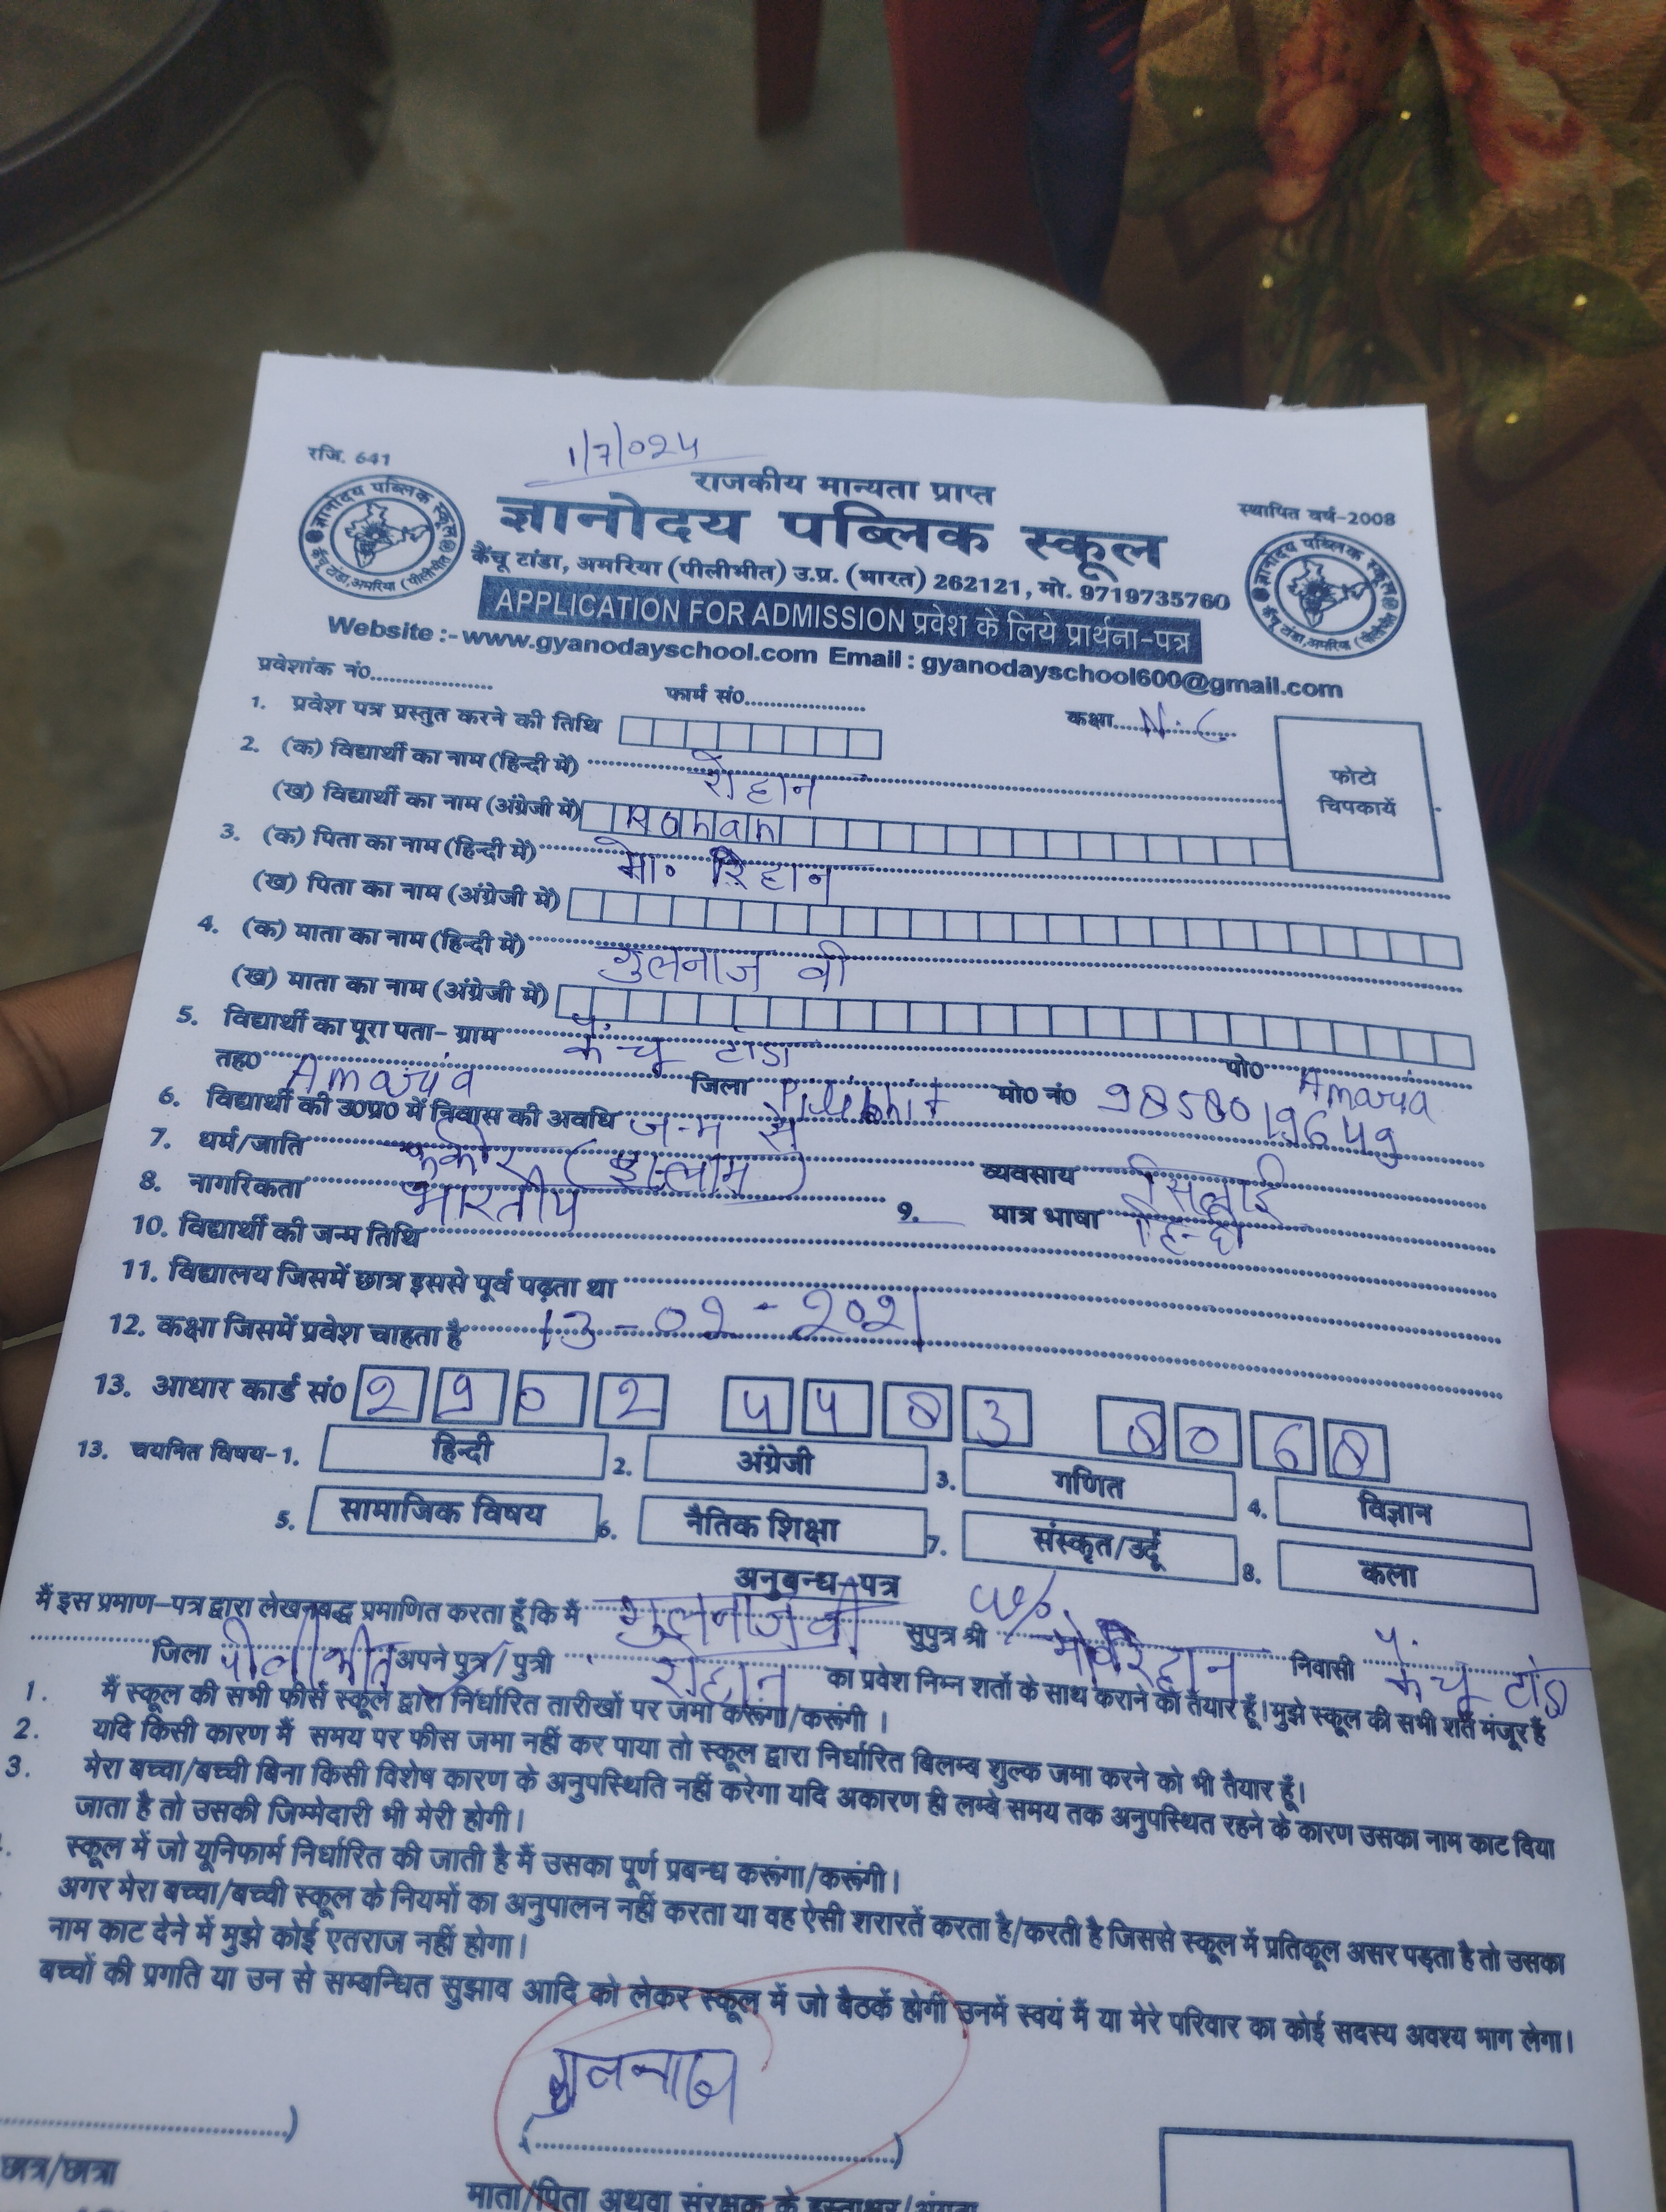 1/7/024
रजि. 641
राजकीय मान्यता प्राप्त
स्थापित वर्ष-2008
ज्ञानोदय पब्लिक स्कूल
कैंचू टांडा, अमरिया (पीलीभीत) उ.प्र. (भारत) 262121, मो. 9719735760
APPLICATION FOR ADMISSION प्रवेश के लिये प्रार्थना-पत्र
Website :- www.gyanodayschool.com Email : gyanodayschool600@gmail.com
प्रवेशांक नं० फार्म सं० कक्षा N.C.
1. प्रवेश पत्र प्रस्तुत करने की तिथि
फोटो
चिपकायें
2. (क) विद्यार्थी का नाम (हिन्दी में) रोहान
(ख) विद्यार्थी का नाम (अंग्रेजी में) Rohan
3. (क) पिता का नाम (हिन्दी में) मो० रिहान
(ख) पिता का नाम (अंग्रेजी में)
4. (क) माता का नाम (हिन्दी में) गुलनाज वी
(ख) माता का नाम (अंग्रेजी में)
5. विद्यार्थी का पूरा पता- ग्राम कैंचू टांडा पो० Amaria
तह० Amaria जिला Pilibhit मो० नं० 9858019649
6. विद्यार्थी की उ०प्र० में निवास की अवधि जन्म से
7. धर्म/जाति (इस्लाम) व्यवसाय सिलाई
8. नागरिकता भारतीय 9. मात्र भाषा हिन्दी
10. विद्यार्थी की जन्म तिथि
11. विद्यालय जिसमें छात्र इससे पूर्व पढ़ता था
12. कक्षा जिसमें प्रवेश चाहता है 13-02-2021
13. आधार कार्ड सं० 2902 4483 8068
13. चयनित विषय-1. हिन्दी 2. अंग्रेजी 3. गणित 4. विज्ञान
5. सामाजिक विषय 6. नैतिक शिक्षा 7. संस्कृत/उर्दू 8. कला
अनुबन्ध-पत्र
मैं इस प्रमाण-पत्र द्वारा लेखनबद्ध प्रमाणित करता हूँ कि मैं गुलनाज वी सुपुत्र श्री w/o मो० रिहान निवासी कैंचू टांडा
जिला पीलीभीत अपने पुत्र/पुत्री रोहान का प्रवेश निम्न शर्तो के साथ कराने को तैयार हूँ। मुझे स्कूल की सभी शर्ते मंजूर हैं
1. मैं स्कूल की सभी फीसें स्कूल द्वारा निर्धारित तारीखों पर जमा करूंगा/करूंगी ।
2. यदि किसी कारण मैं समय पर फीस जमा नहीं कर पाया तो स्कूल द्वारा निर्धारित बिलम्ब शुल्क जमा करने को भी तैयार हूँ।
3. मेरा बच्चा/बच्ची बिना किसी विशेष कारण के अनुपस्थिति नहीं करेगा यदि अकारण ही लम्बे समय तक अनुपस्थित रहने के कारण उसका नाम काट दिया
जाता है तो उसकी जिम्मेदारी भी मेरी होगी।
स्कूल में जो यूनिफार्म निर्धारित की जाती है मैं उसका पूर्ण प्रबन्ध करूंगा/करूंगी।
अगर मेरा बच्चा/बच्ची स्कूल के नियमों का अनुपालन नहीं करता या वह ऐसी शरारतें करता है/करती है जिससे स्कूल में प्रतिकूल असर पड़ता है तो उसका
नाम काट देने में मुझे कोई एतराज नहीं होगा।
बच्चों की प्रगति या उन से सम्बन्धित सुझाव आदि को लेकर स्कूल में जो बैठकें होगीं उनमें स्वयं मैं या मेरे परिवार का कोई सदस्य अवश्य भाग लेगा।
गुलनाज
छात्र/छात्रा
माता/पिता अथवा संरक्षक के हस्ताक्षर/अंगूठा